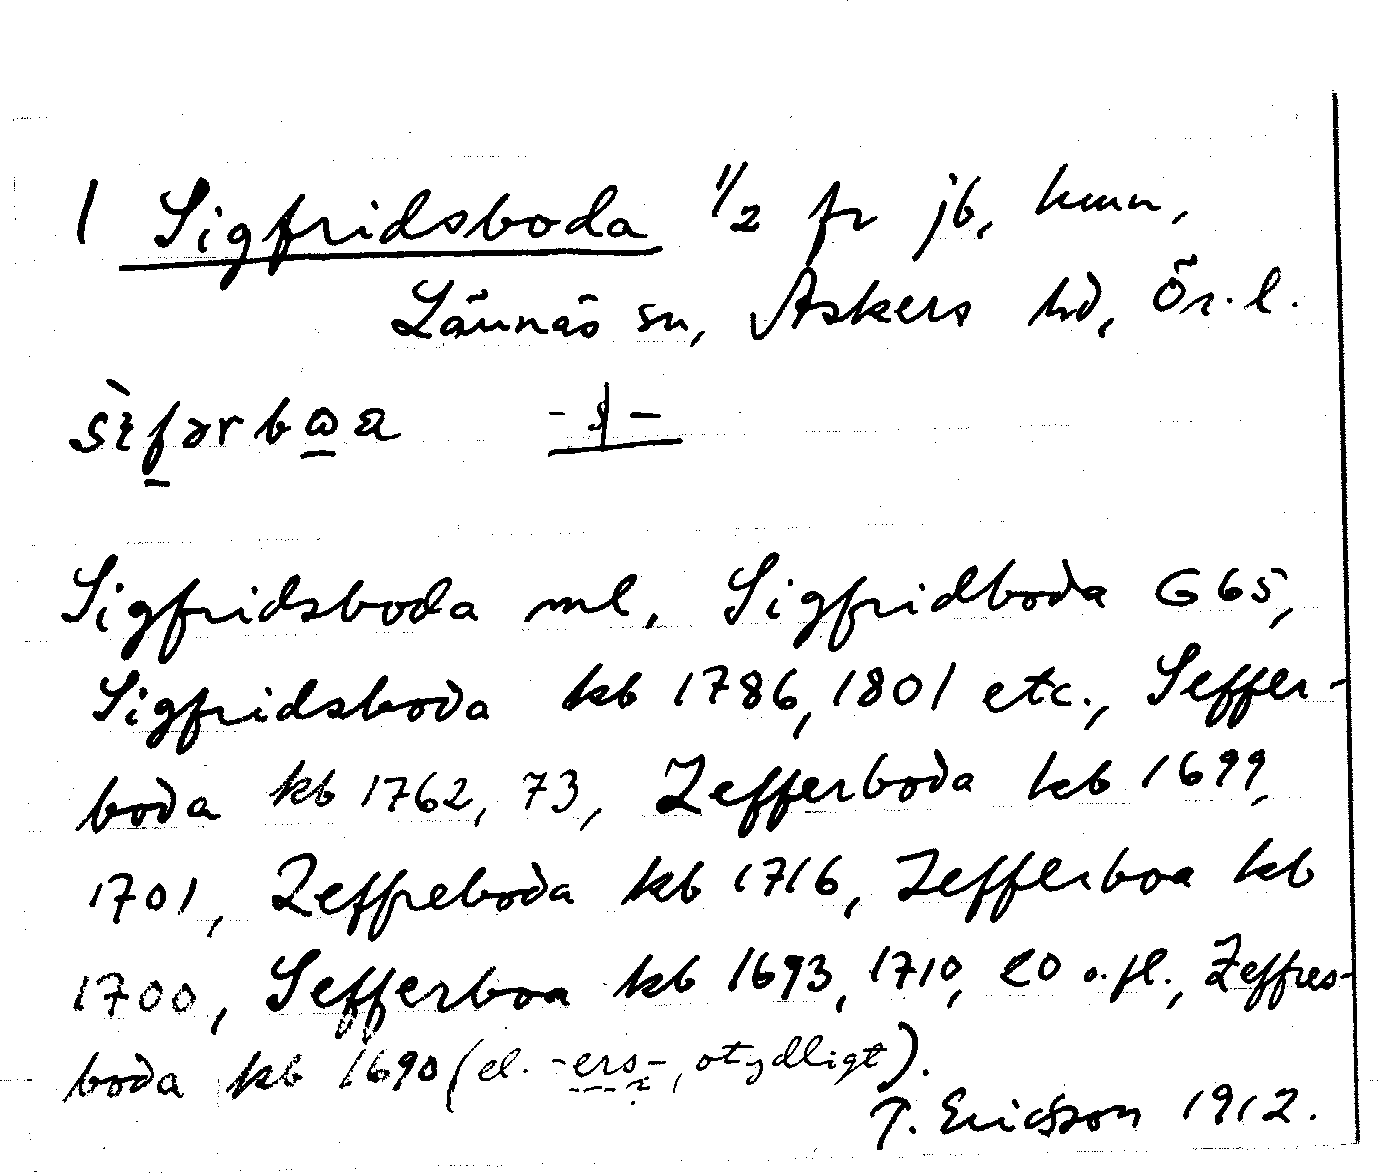 1 Sigfridsboda 1/2 fr jb, hmn,
Lännäs sn, Askers hd, Ör. l.
Sigfridsboda ml, Sigfridboda G65,
Sigfridsboda kb 1786, 1801 etc., Seffer-
boda kb 1762, 73, Zefferboda kb 1699,
1701, Zeffreboda kb 1716, Zefferboa kb
1700, Sefferboa kb 1693, 1710, 20 o. fl., Zeffres-
boda kb 1690 (el. -ers-, otydligt).
T. Ericsson 1912.